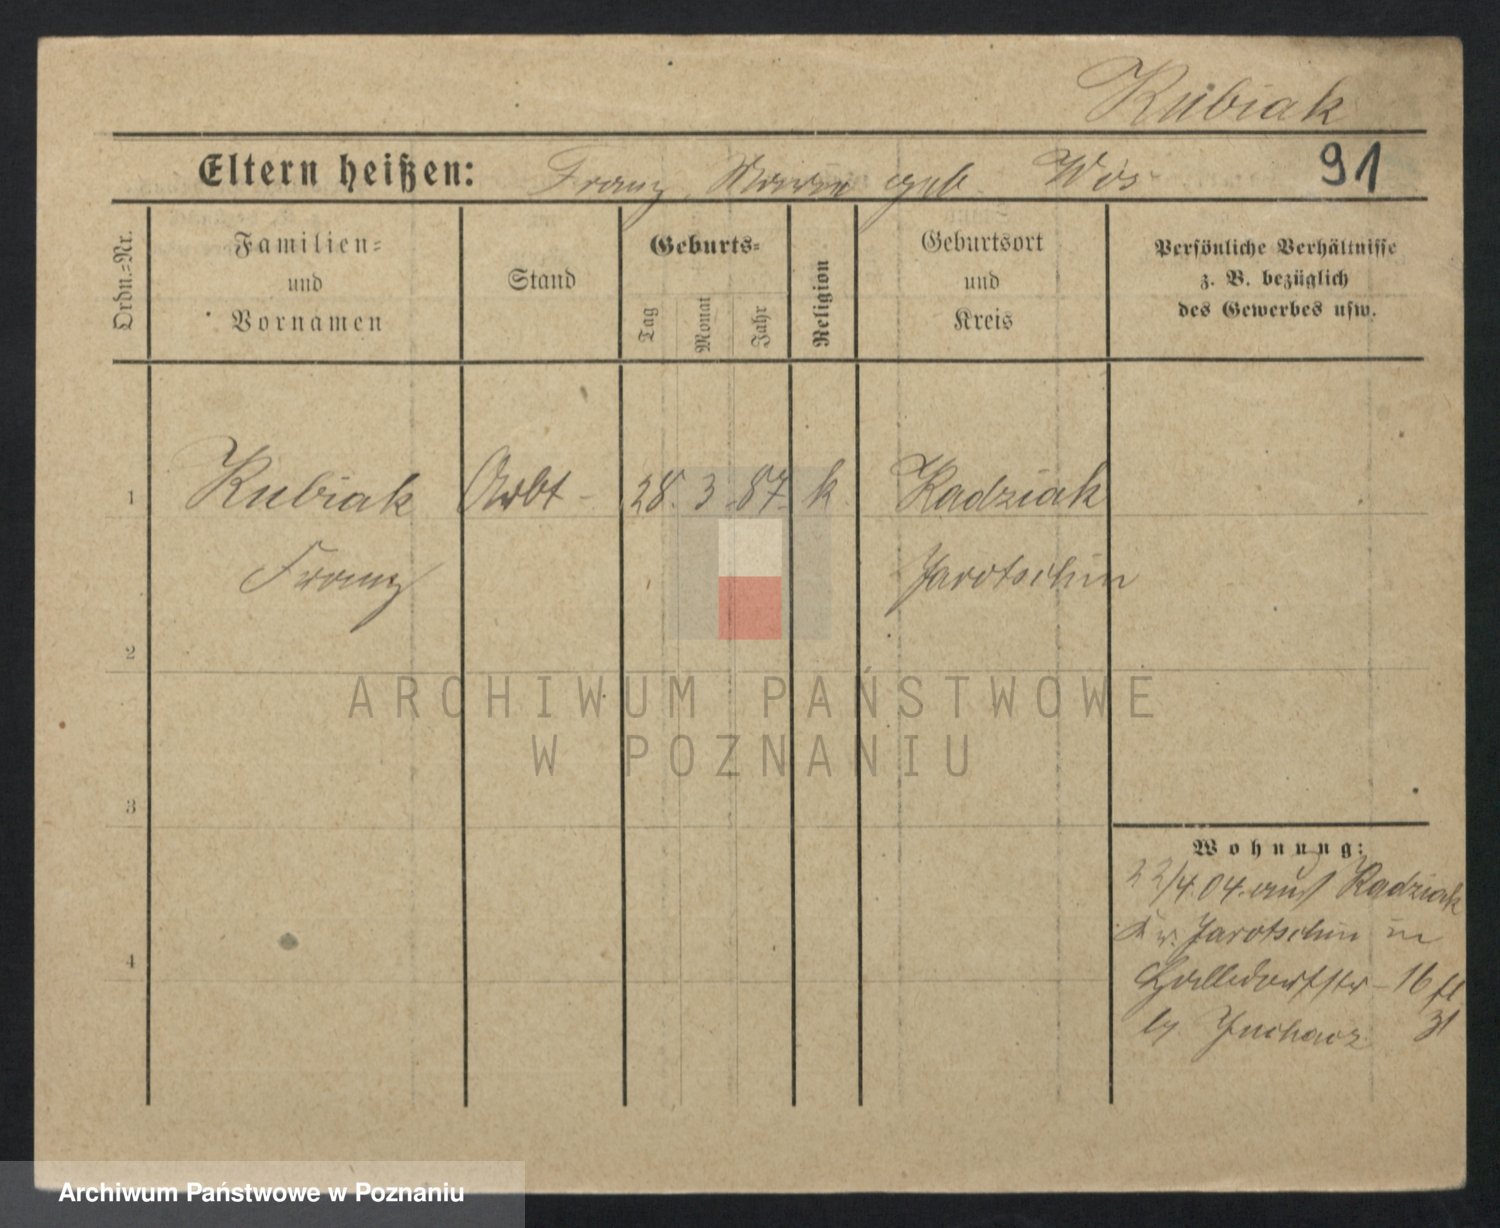 Kubiak
Eltern heißen: Franz, Maria geb. Wos
91
Ordn.=Nr.
Familien=
und
Vornamen
Stand
Geburts=
Tag
Monat
Jahr
Religion
Geburtsort
und
Kreis
Persönliche Verhältnisse
z. B. bezüglich
des Gewerbes usw.
1 Kubiak Arbt - 28. 3. 87. k. Radziak
Franz Jarotschin
2
3
Wohnung:
22/4.04. aus Radziak
Kr. Jarotschin in
16
by
4
ARCHIWUM PAŃSTWOWE
W POZNANIU
Archiwum Państwowe w Poznaniu